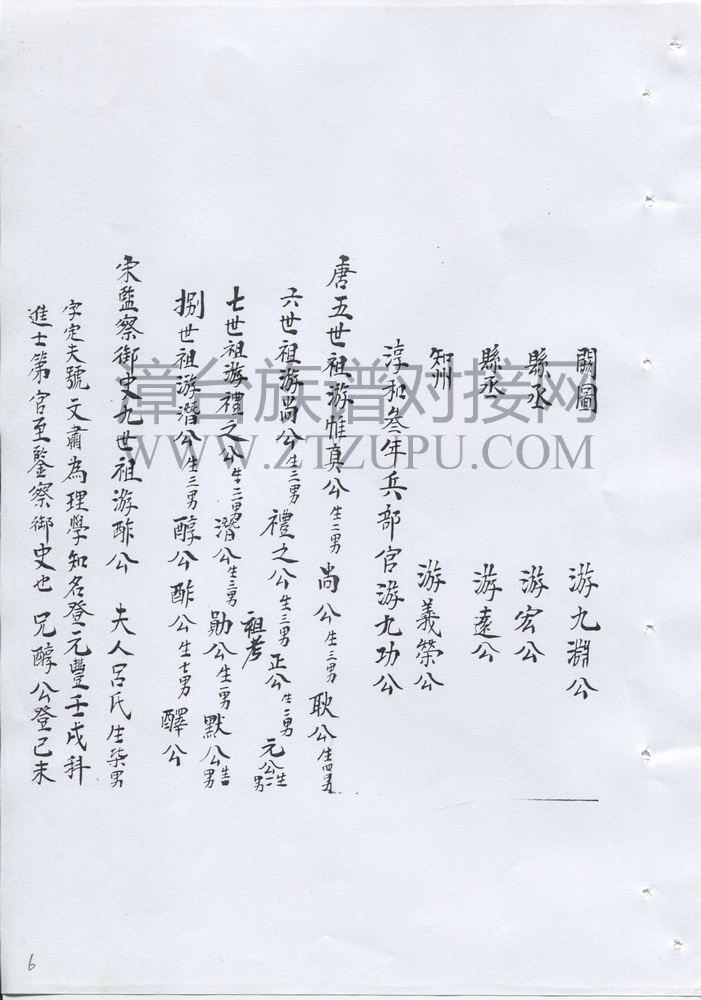 閣圖 游九淵公
縣丞 游宏公
縣丞 游遠公
知州 游義榮公
淳和叁年兵部官游九功公
唐五世祖游惟真公生二男 尚公生三男 耿公生四男
六世祖游尚公生三男 禮之公生三男 正公生二男 元公生一男
祖考
七世祖游禮之公生三男 潛公生三男 勛公生一男 默公生男
捌世祖游潛公生三男 醇公 酢公生七男 醳公
宋監察御史九世祖游酢公 夫人呂氏生柒男
字定夫號文肅為理學知名登元豐壬戌科
進士第官至鑒察御史也 兄醇公登己未
漳台族谱对接网
WWW.ZTZUPU.COM
6